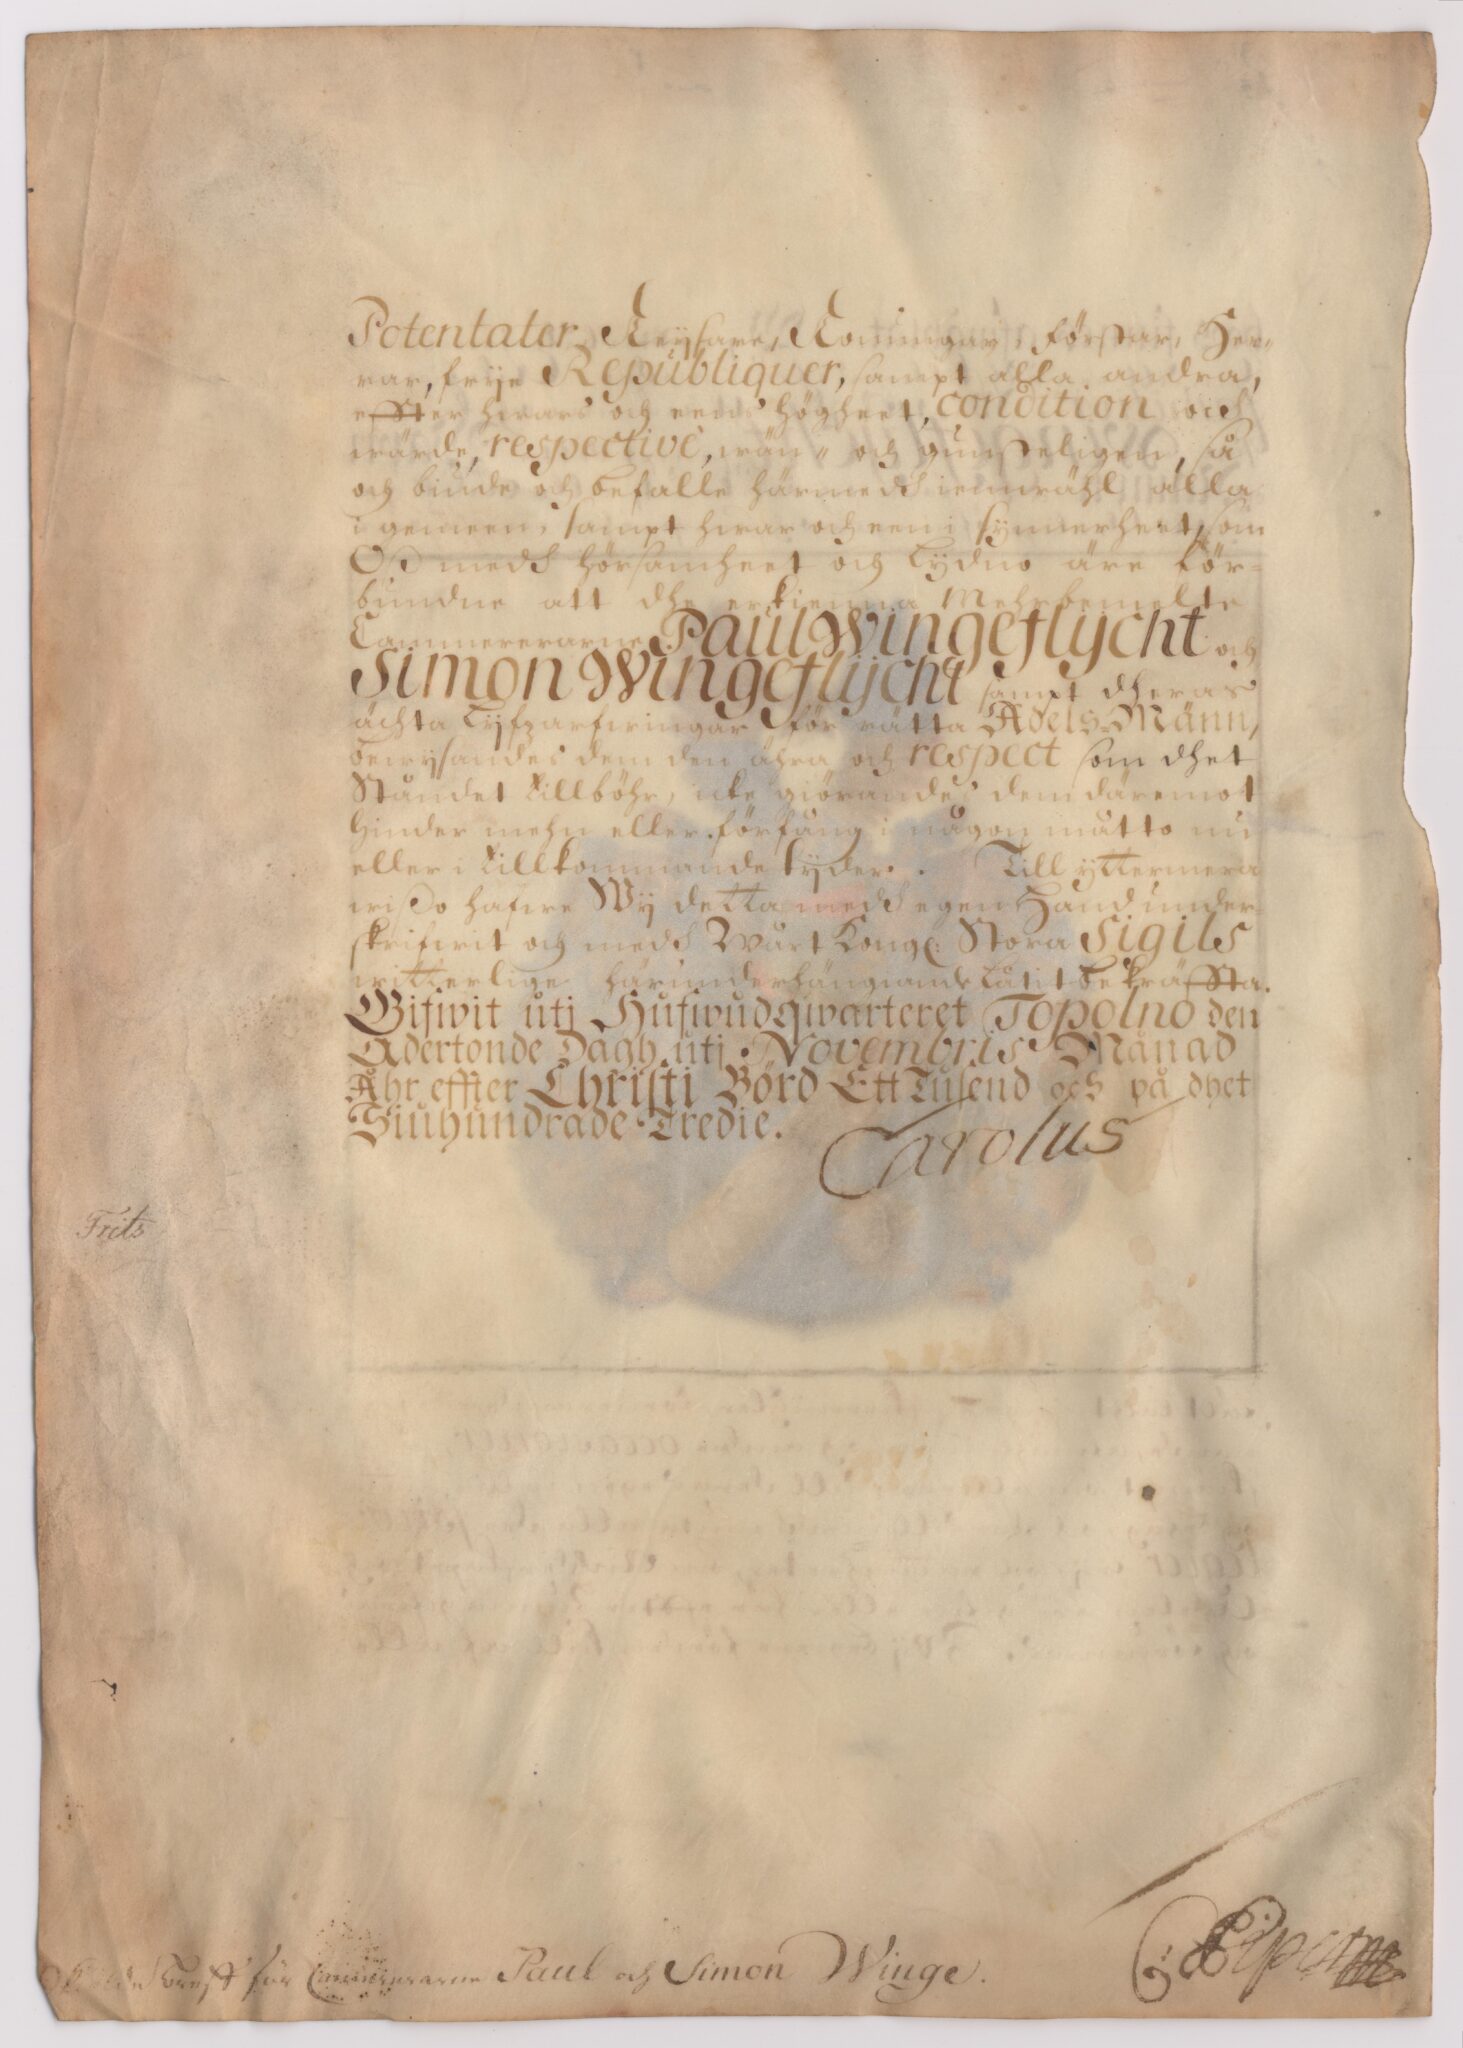 Potentater, Keysare, Konungar, Förstar, Her„
rar, frye Republiquer, sampt alla andra,
effter hwars och eens högheet, condition och
wärde, respectivè, wän„ och gunsteligen, så
och biude och befalle härmedh iemwähl alla
i gemeen, sampt hwar och een i synnerheet, som
Oß medh hörsamheet och Lydno äre för=
bundne att dhe erkienna Mehrbemelte
Cammererarne Paul Wingeflycht och
Simon Wingeflycht sampt dheras
ächta Lyfzarfwingar för rätta Adels-Männ,
bewysandes dem den ähra och respect som dhet
Ståndet tillböhr, icke giörandes dem däremot
hinder mehn eller förfång i någon måtto nu
eller i tillkommande tyder. Till yttermera
wißo hafwe Wy detta medh egen Hand under„
skrifwit och medh Wårt Kongl: Stora Sigils
witterlige härunderhängiande Låtit bekräffta.
Gifwit uti Hufwudqwarteret Topolno den
Adertonde Dagh uti Novembris Månad
Åhr effter Christi Börd Ett Tusend och på dhet
Siuhundrade Tredie.
Carolus
Frits
Skölde Breff för Cammererarne Paul och Simon Winge.
C Piper